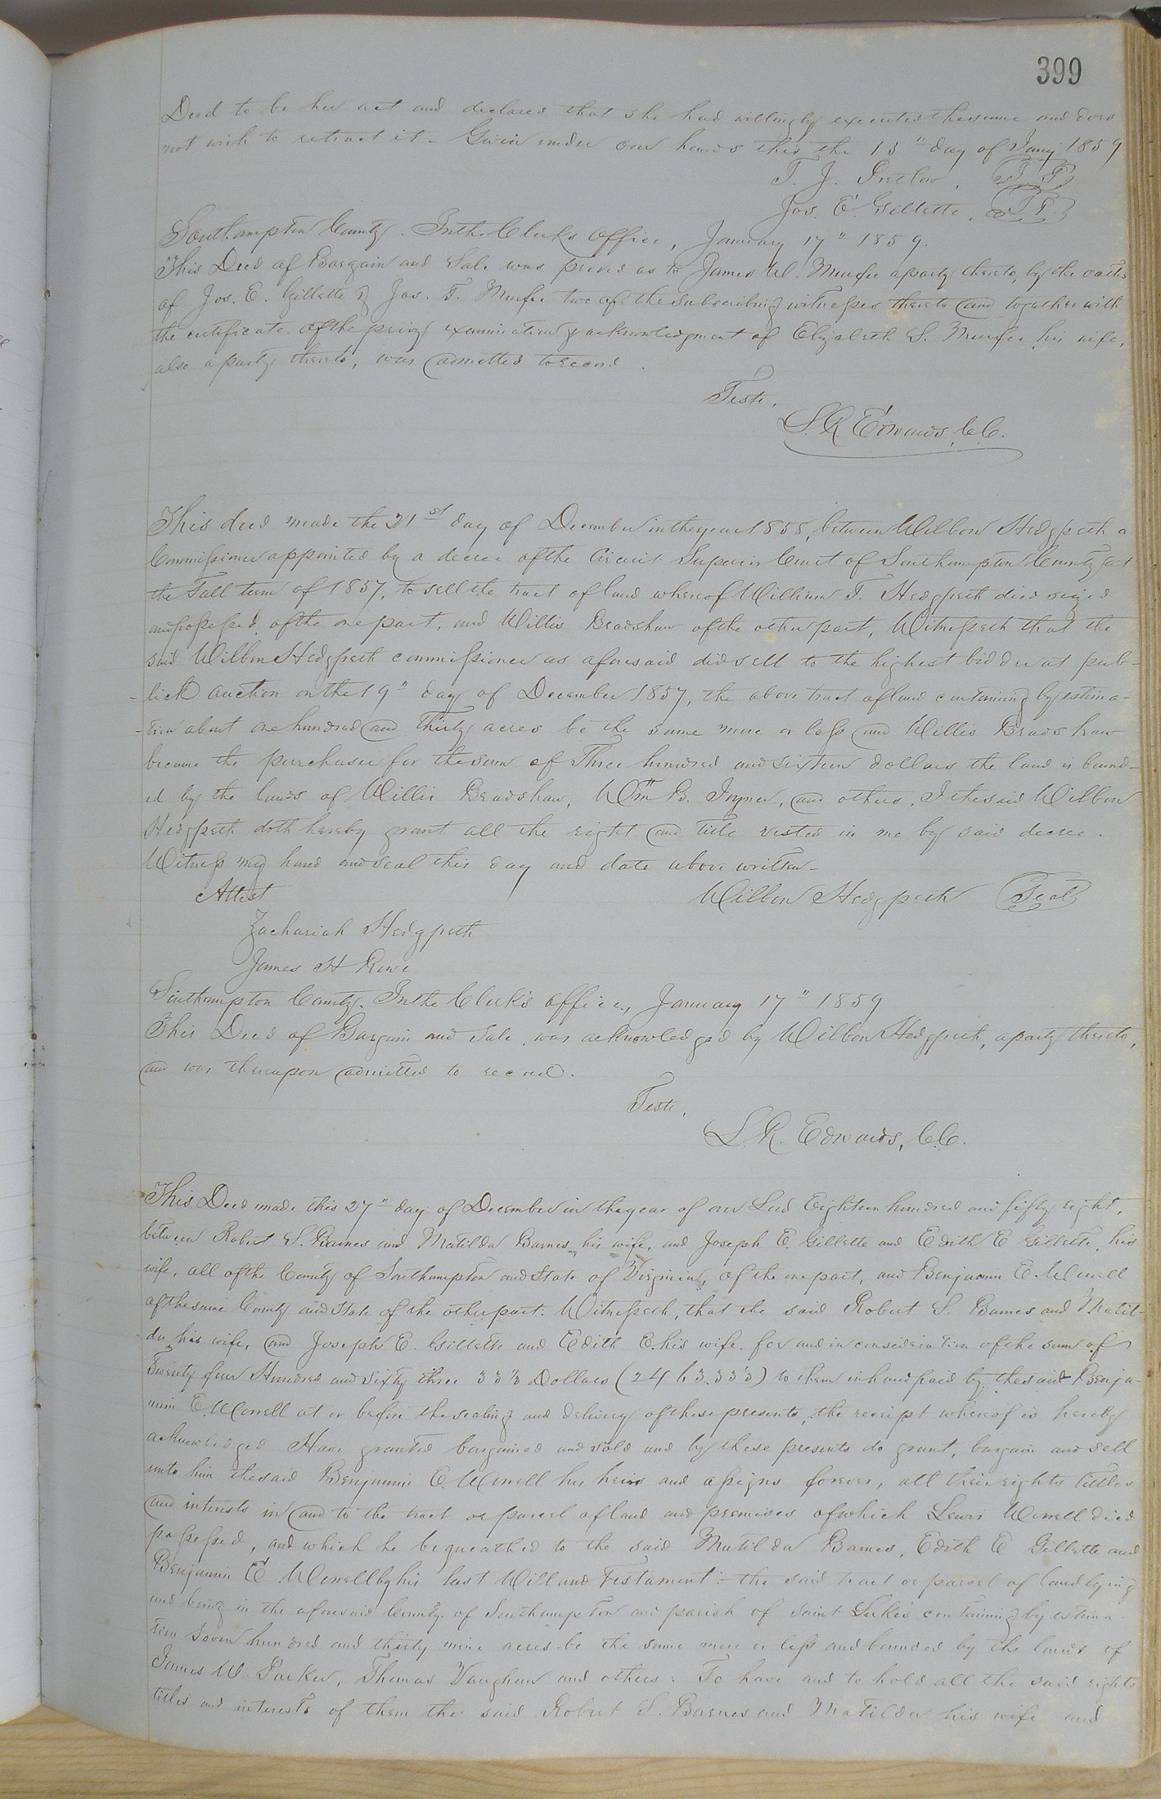 399
Deed to be her act and declares that she had willingly executed the same and does
not wish to retract it. Given under our hands this the 15" day of Jany 1859
T. J. Pretlow, J P
Jos. E. Gillette, J P
Southampton County. In the Clerks Office, January 17" 1859.
This Deed of Bargain and Sale was proved as to James W. Murfee a party thereto, by the oaths
of Jos. E. Gillette & Jas. T. Murfee two of the subscribing witnesses thereto and together with
the certificate of the privy examination & acknowledgment of Elizabeth S. Murfee his wife,
also a party thereto, was admitted to record.
Teste,
L. R. Edwards, C.C.
This deed made the 21st day of December in the year 1858, between Wilbon Hedgpeth a
Commissioner appointed by a decree of the Circuit Superior Court of Southampton County at
the Fall term of 1857, to sell the tract of land whereof William T. Hedgpeth died seized
and possessed, of the one part, and Willis Bradshaw of the other part, Witnesseth that the
said Wilbon Hedgpeth commissioner as aforesaid did sell to the highest bidder at pub-
lick auction on the 19" day of December 1857, the above tract of land containing by estima-
tion about one hundred and thirty acres be the same more or less and Willis Bradshaw
became the purchaser for the sum of Three hundred and sixteen dollars the land is bound-
ed by the lands of Willis Bradshaw, Wm B. Joyner, and others. I the said Wilbon
Hedgpeth doth hereby grant all the right and title vested in me by said decree.
Witness my hand and seal this day and date above written.
Attest Wilbon Hedgpeth Seal
Zachariah Hedgpeth
James H Rowe
Southampton County. In the Clerk's office, January 17" 1859
This Deed of Bargain and Sale, was acknowledged by Wilbon Hedgpeth, a party thereto,
and was thereupon admitted to record.
Teste,
L R. Edwards, C.C.
This Deed made this 27" day of December in the year of our Lord Eighteen hundred and fifty eight,
between Robert S. Barnes and Matilda Barnes his wife, and Joseph E. Gillette and Edith E Gillette, his
wife, all of the County of Southampton and State of Virginia, of the one part, and Benjamin E. Worrell
of the same County and State of the other part. Witnesseth, that the said Robert S. Barnes and Matil-
da his wife, and Joseph E. Gillette and Edith E. his wife. for and in consideration of the sum of
Twenty four Hundred and sixty three 33⅓ Dollars (2463.333) to them in hand paid by the said Benja-
min E. Worrell at or before the sealing and delivery of these presents, the receipt whereof is hereby
acknowledged Have granted bargained and sold and by these presents do grant, bargain and sell
unto him the said Benjamin E. Worrell his heirs and assigns forever, all their rights titles
and interests in and to the tract or parcel of land and premises of which Lewis Worrell died
possessed, and which he bequeathed to the said Matilda Barnes, Edith E Gillette and
Benjamin E Worrell by his last Will and Testament - the said tract or parcel of land lying
and being in the aforesaid County of Southampton and parish of Saint Lukes containing by estima-
tion seven hundred and thirty nine acres be the same more or less and bounded by the lands of
James W. Parker, Thomas Vaughan and others. To have and to hold all the said rights
titles and interests of them the said Robert S. Barnes and Matilda his wife and